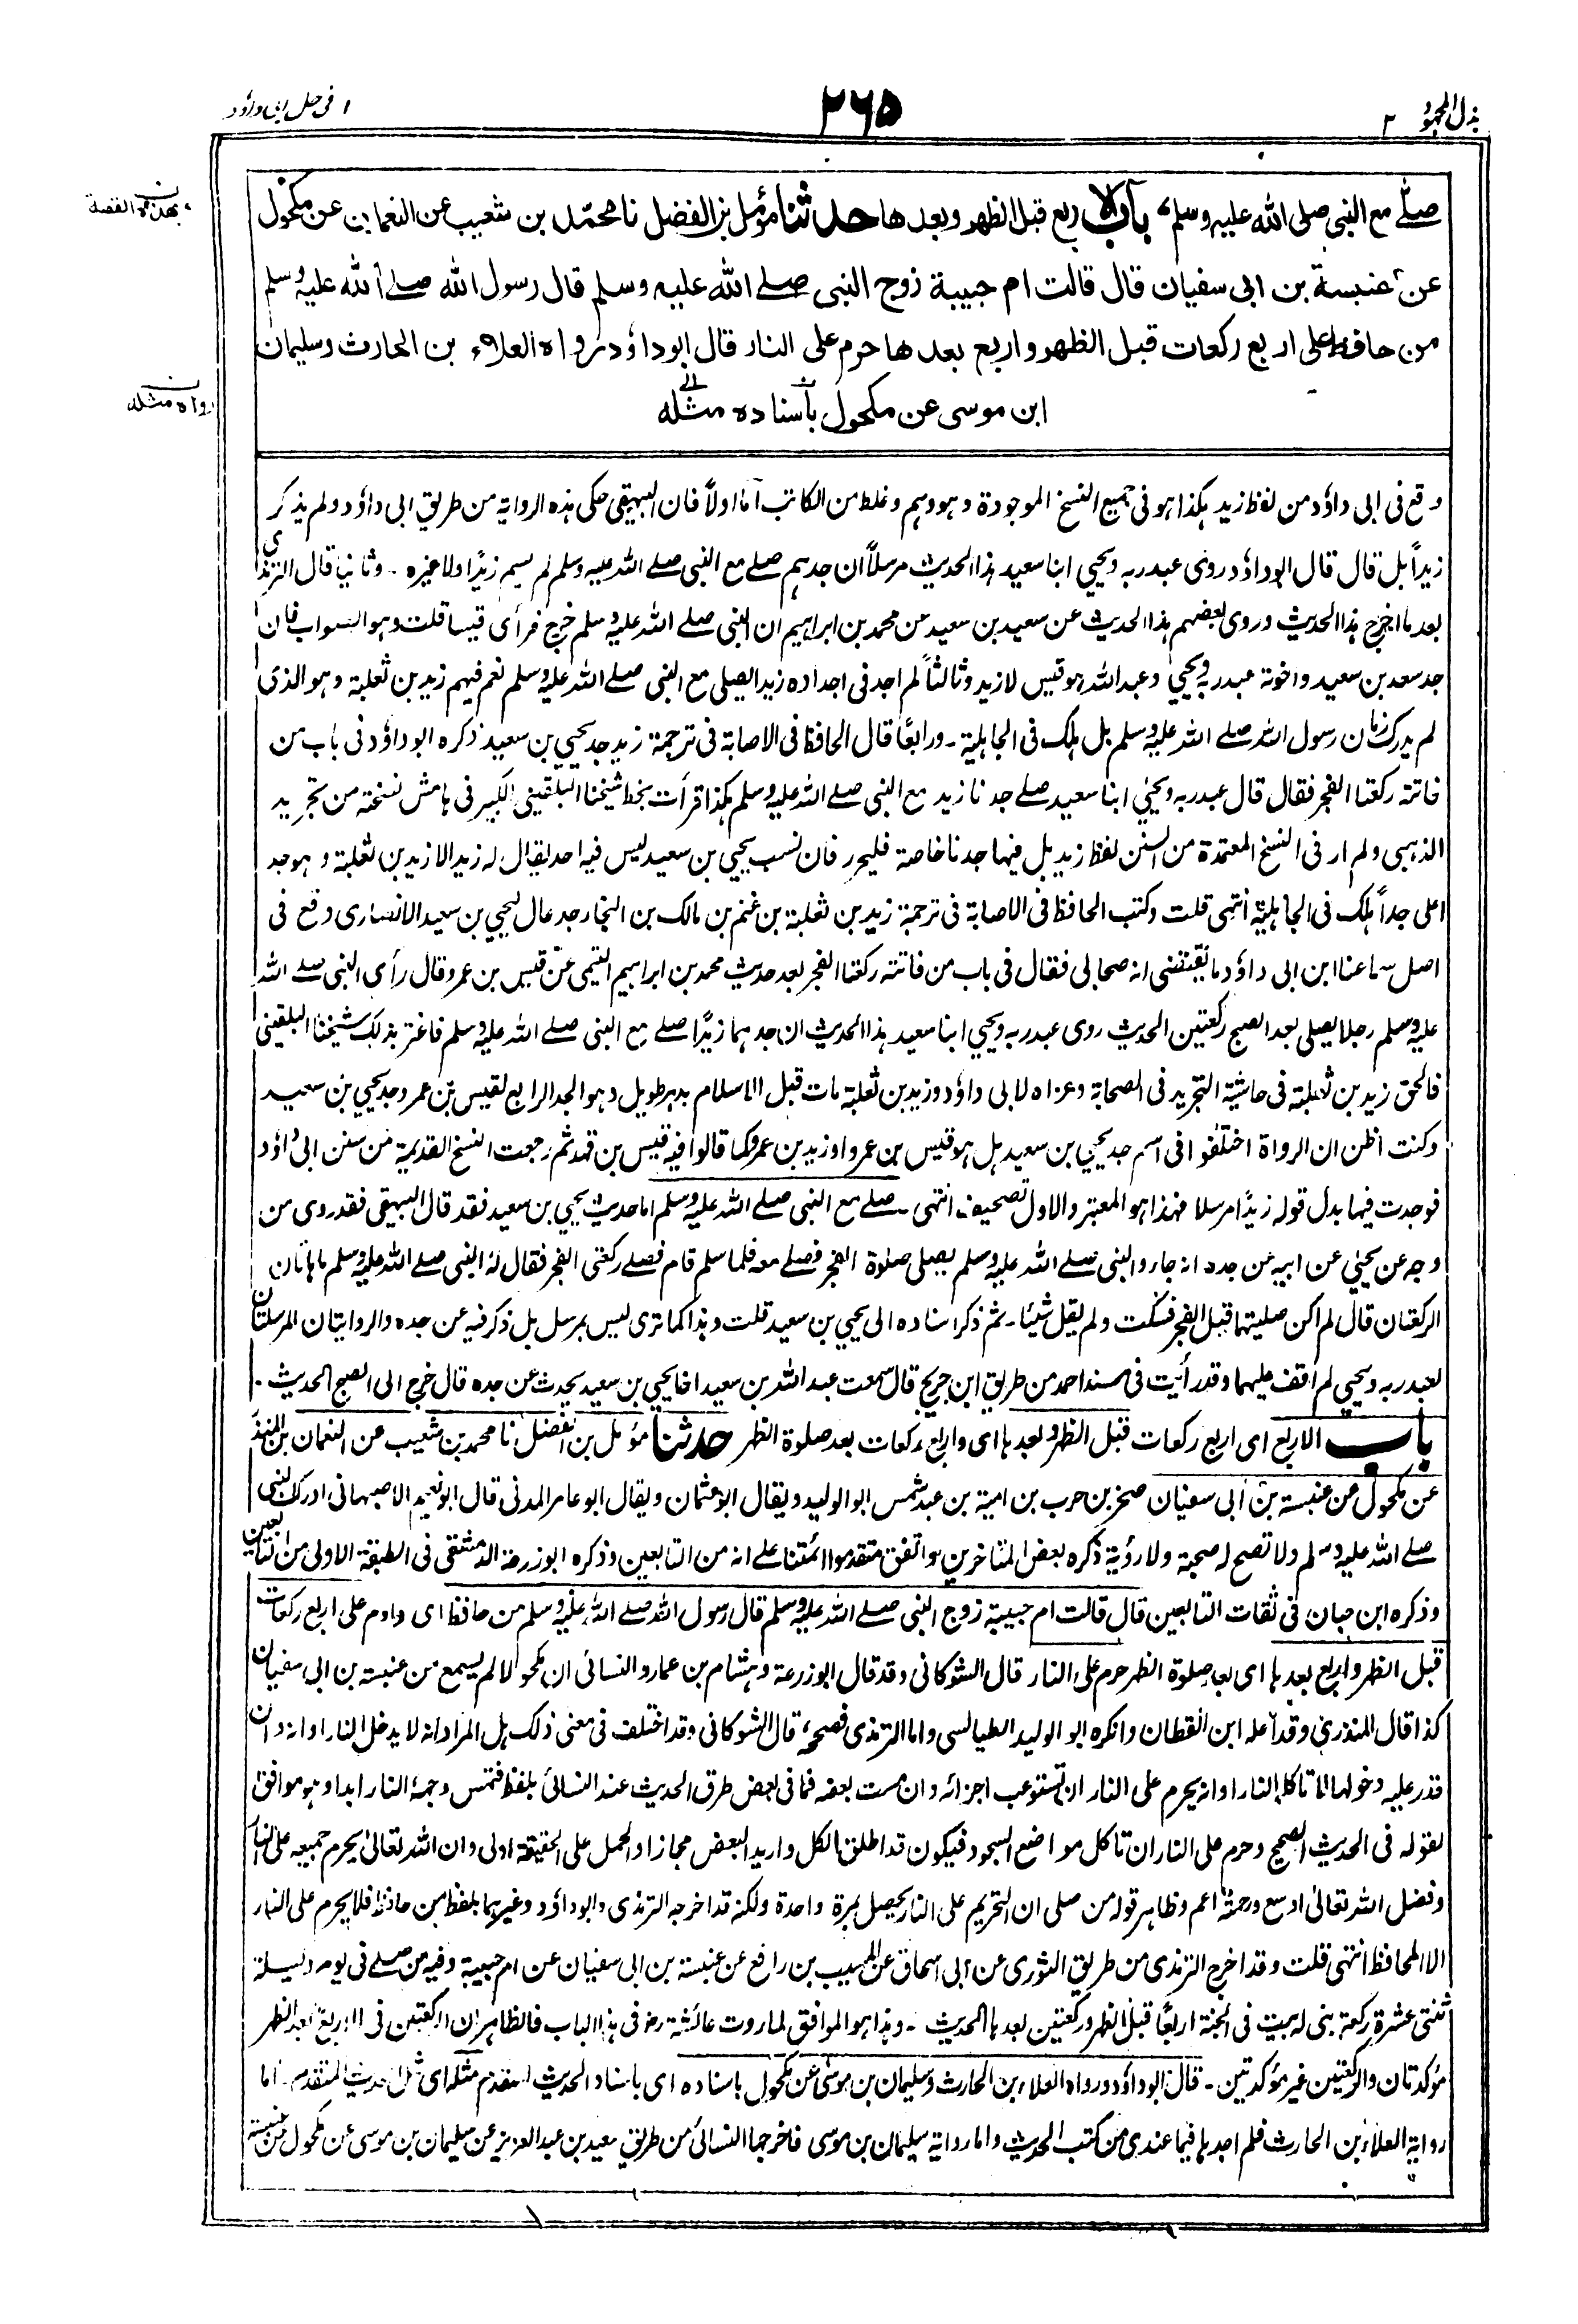 بذل المجهود ٢
٢٦٥
فی حل ابی داؤد
صلے مع النبی صلی الله علیه وسلم، باب الاربع قبل الظهر وبعدها حدثنا مؤمل بن الفضل نا محمد بن شعیب عن النعمان عن مکحول
بهذه القصة
عن عنبسة بن ابی سفیان قال قالت ام حبیبة زوج النبی صلے الله علیه وسلم قال رسول الله صلے الله علیه وسلم
من حافظ علی اربع رکعات قبل الظهر واربع بعدها حرم علی النار قال ابوداؤد رواه العلاء بن الحارث وسلیمان
ابن موسی عن مکحول باسناده مثله
رواه مثله
وقع فی ابی داؤد من لفظ زید هکذا هو فی جمیع النسخ الموجودة وهو وهم وغلط من الکاتب اما اولاً فان البیهقی حکی هذه الروایة من طریق ابی داؤد ولم یذکر
زیداً بل قال قال ابوداؤد روی عبدربه ویحیی ابنا سعید هذا الحدیث مرسلاً ان جدهم صلے مع النبی صلے الله علیه وسلم لم یسم زیدًا ولا غیره ۔ وثانیا قال الترمذی
بعد ما اخرج هذا الحدیث وروی بعضهم هذا الحدیث عن سعید بن سعید عن محمد بن ابراهیم ان النبی صلے الله علیه وسلم خرج فرأی قیسا قلت وهو الصواب فان
جد سعد بن سعید واخوته عبدربه ویحیی وعبدالله هو قیس لا زید وثالثاً لم اجد فی اجداده زید ایصلی مع النبی صلے الله علیه وسلم نعم فیهم زید بن ثعلبة وهو الذی
لم یدرک زمان رسول الله صلے الله علیه وسلم بل هلک فی الجاهلیة ۔ ورابعًا قال الحافظ فی الاصابة فی ترجمة زید جد یحیی بن سعید ذکره ابوداؤد فی باب من
فاتته رکعتا الفجر فقال قال عبدربه ویحیی ابنا سعید صلے جدنا زید مع النبی صلے الله علیه وسلم هکذا قرأت بخط شیخنا البلقینی الکبیر فی هامش نسخته من تجرید
الذهبی ولم ار فی النسخ المعتمدة من السنن لفظ زید بل فیها جدنا خاصة فلیحرر فان نسب یحیی بن سعید لیس فیه احد یقال له زید الا زید بن ثعلبة وهو جد
اعلی جداً هلک فی الجاهلیة انتهی قلت وکتب الحافظ فی الاصابة فی ترجمة زید بن ثعلبة بن غنم بن مالک بن النجار جد عال لیحیی بن سعید الانصاری وقع فی
اصل سماعنا ابن ابی داؤد ما یقتضی انه صحابی فقال فی باب من فاتته رکعتا الفجر بعد حدیث محمد بن ابراهیم التیمی عن قیس بن عمرو قال رأی النبی صلے الله
علیه وسلم رجلا یصلی بعد الصبح رکعتین الحدیث روی عبدربه ویحیی ابنا سعید هذا الحدیث ان جدهما زیدًا صلے مع النبی صلے الله علیه وسلم فاغتر بذلک شیخنا البلقینی
فالحق زید بن ثعلبة فی حاشیة التجرید فی الصحابة وعزاه لابی داؤد وزید بن ثعلبة مات قبل الاسلام بدهر طویل وهو الجد الرابع لقیس بن عمرو جد یحیی بن سعید
وکنت اظن ان الرواة اختلفوا فی اسم جد یحیی بن سعید هل هو قیس بن عمرو او زید بن عمرو کما قالوا فیه قیس بن قهد ثم رجعت النسخ القدیمة من سنن ابی داؤد
فوجدت فیها بدل قوله زیدًا مرسلا فهذا هو المعتبر والاول تصحیف ۔ انتهی ۔ صلے مع النبی صلے الله علیه وسلم اما حدیث یحیی بن سعید فقد قال البیهقی فقد روی من
وجه عن یحیی عن ابیه عن جده انه جاء والنبی صلے الله علیه وسلم یصلی صلوة الفجر فصلے معه فلما سلم قام فصلے رکعتی الفجر فقال له النبی صلے الله علیه وسلم ما هاتان
الرکعتان قال لم اکن صلیتهما قبل الفجر فسکت ولم یقل شیئا ۔ ثم ذکر اسناده الی یحیی بن سعید قلت وهذا کما تری لیس بمرسل بل ذکر فیه عن جده والروایتان المرسلتان
لعبدربه ویحیی لم اقف علیهما وقد رأیت فی مسند احمد من طریق ابن جریج قال سمعت عبدالله بن سعید اخا یحیی بن سعید یحدث عن جده قال خرج الی الصبح الحدیث ۔
باب الاربع ای اربع رکعات قبل الظهر وبعدها ای واربع رکعات بعد صلوة الظهر حدثنا مؤمل بن الفضل نا محمد بن شعیب عن النعمان بن المنذر
عن مکحول عن عنبسة بن ابی سفیان صخر بن حرب بن امیة بن عبدشمس ابو الولید ویقال ابو عثمان ویقال ابو عامر المدنی قال ابو نعیم الاصبهانی ادرک النبی
صلے الله علیه وسلم ولا تصح له صحبة ولا رؤیة ذکره بعض المتاخرین واتفق متقدموا ائمتنا علے انه من التابعین وذکره ابو زرعة الدمشقی فی الطبقة الاولی من التابعین
وذکره ابن حبان فی ثقات التابعین قال قالت ام حبیبة زوج النبی صلے الله علیه وسلم قال رسول الله صلے الله علیه وسلم من حافظ ای داوم علی اربع رکعات
قبل الظهر واربع بعدها ای بعد صلوة الظهر حرم علی النار قال الشوکانی وقد قال ابو زرعة وهشام بن عمار والنسائی ان مکحولا لم یسمع من عنبسة بن ابی سفیان
کذا قال المنذری وقد اعله ابن القطان وانکره ابو الولید الطیالسی واما الترمذی فصححه، قال الشوکانی وقد اختلف فی معنی ذلک هل المراد انه لا یدخل النار او انه وان
قدر علیه دخولها لا تاکله النار او انه یحرم علی النار ان تستوعب اجزائه وان مست بعضه فما فی بعض طرق الحدیث عند النسائی بلفظ فتمس وجهه النار ابدا وهو موافق
لقوله فی الحدیث الصحیح وحرم علی النار ان تاکل مواضع السجود فیکون قد اطلق الکل وارید البعض مجازا والحمل علی الحقیقة اولی وان الله تعالی یحرم جمیعه علی النار
وفضل الله تعالی اوسع ورحمته اعم وظاهر قوله من صلی ان التحریم علی النار یحصل بمرة واحدة ولکنه قد اخرجه الترمذی وابوداؤد وغیرهما بلفظ من حافظ فلا یحرم علی النار
الا المحافظ انتهی قلت وقد اخرج الترمذی من طریق الثوری عن ابی اسحاق عن المسیب بن رافع عن عنبسة بن ابی سفیان عن ام حبیبة وفیه من صلے فی یوم ولیلة
ثنتی عشرة رکعة بنی له بیت فی الجنة اربعًا قبل الظهر ورکعتین بعدها الحدیث ۔ وهذا هو الموافق لما روت عائشة رض فی هذا الباب فالظاهر ان الرکعتین فی الاربع بعد الظهر
مؤکدتان والرکعتین غیر مؤکدتین ۔ قال ابوداؤد ورواه العلاء بن الحارث وسلیمان بن موسی عن مکحول باسناده ای باسناد الحدیث المتقدم مثله ای مثل الحدیث المتقدم ۔ اما
روایة العلاء بن الحارث فلم اجدها فیما عندی من کتب الحدیث واما روایة سلیمان بن موسی فاخرجها النسائی من طریق سعید بن عبدالعزیز عن سلیمان بن موسی عن مکحول عن عنبسة